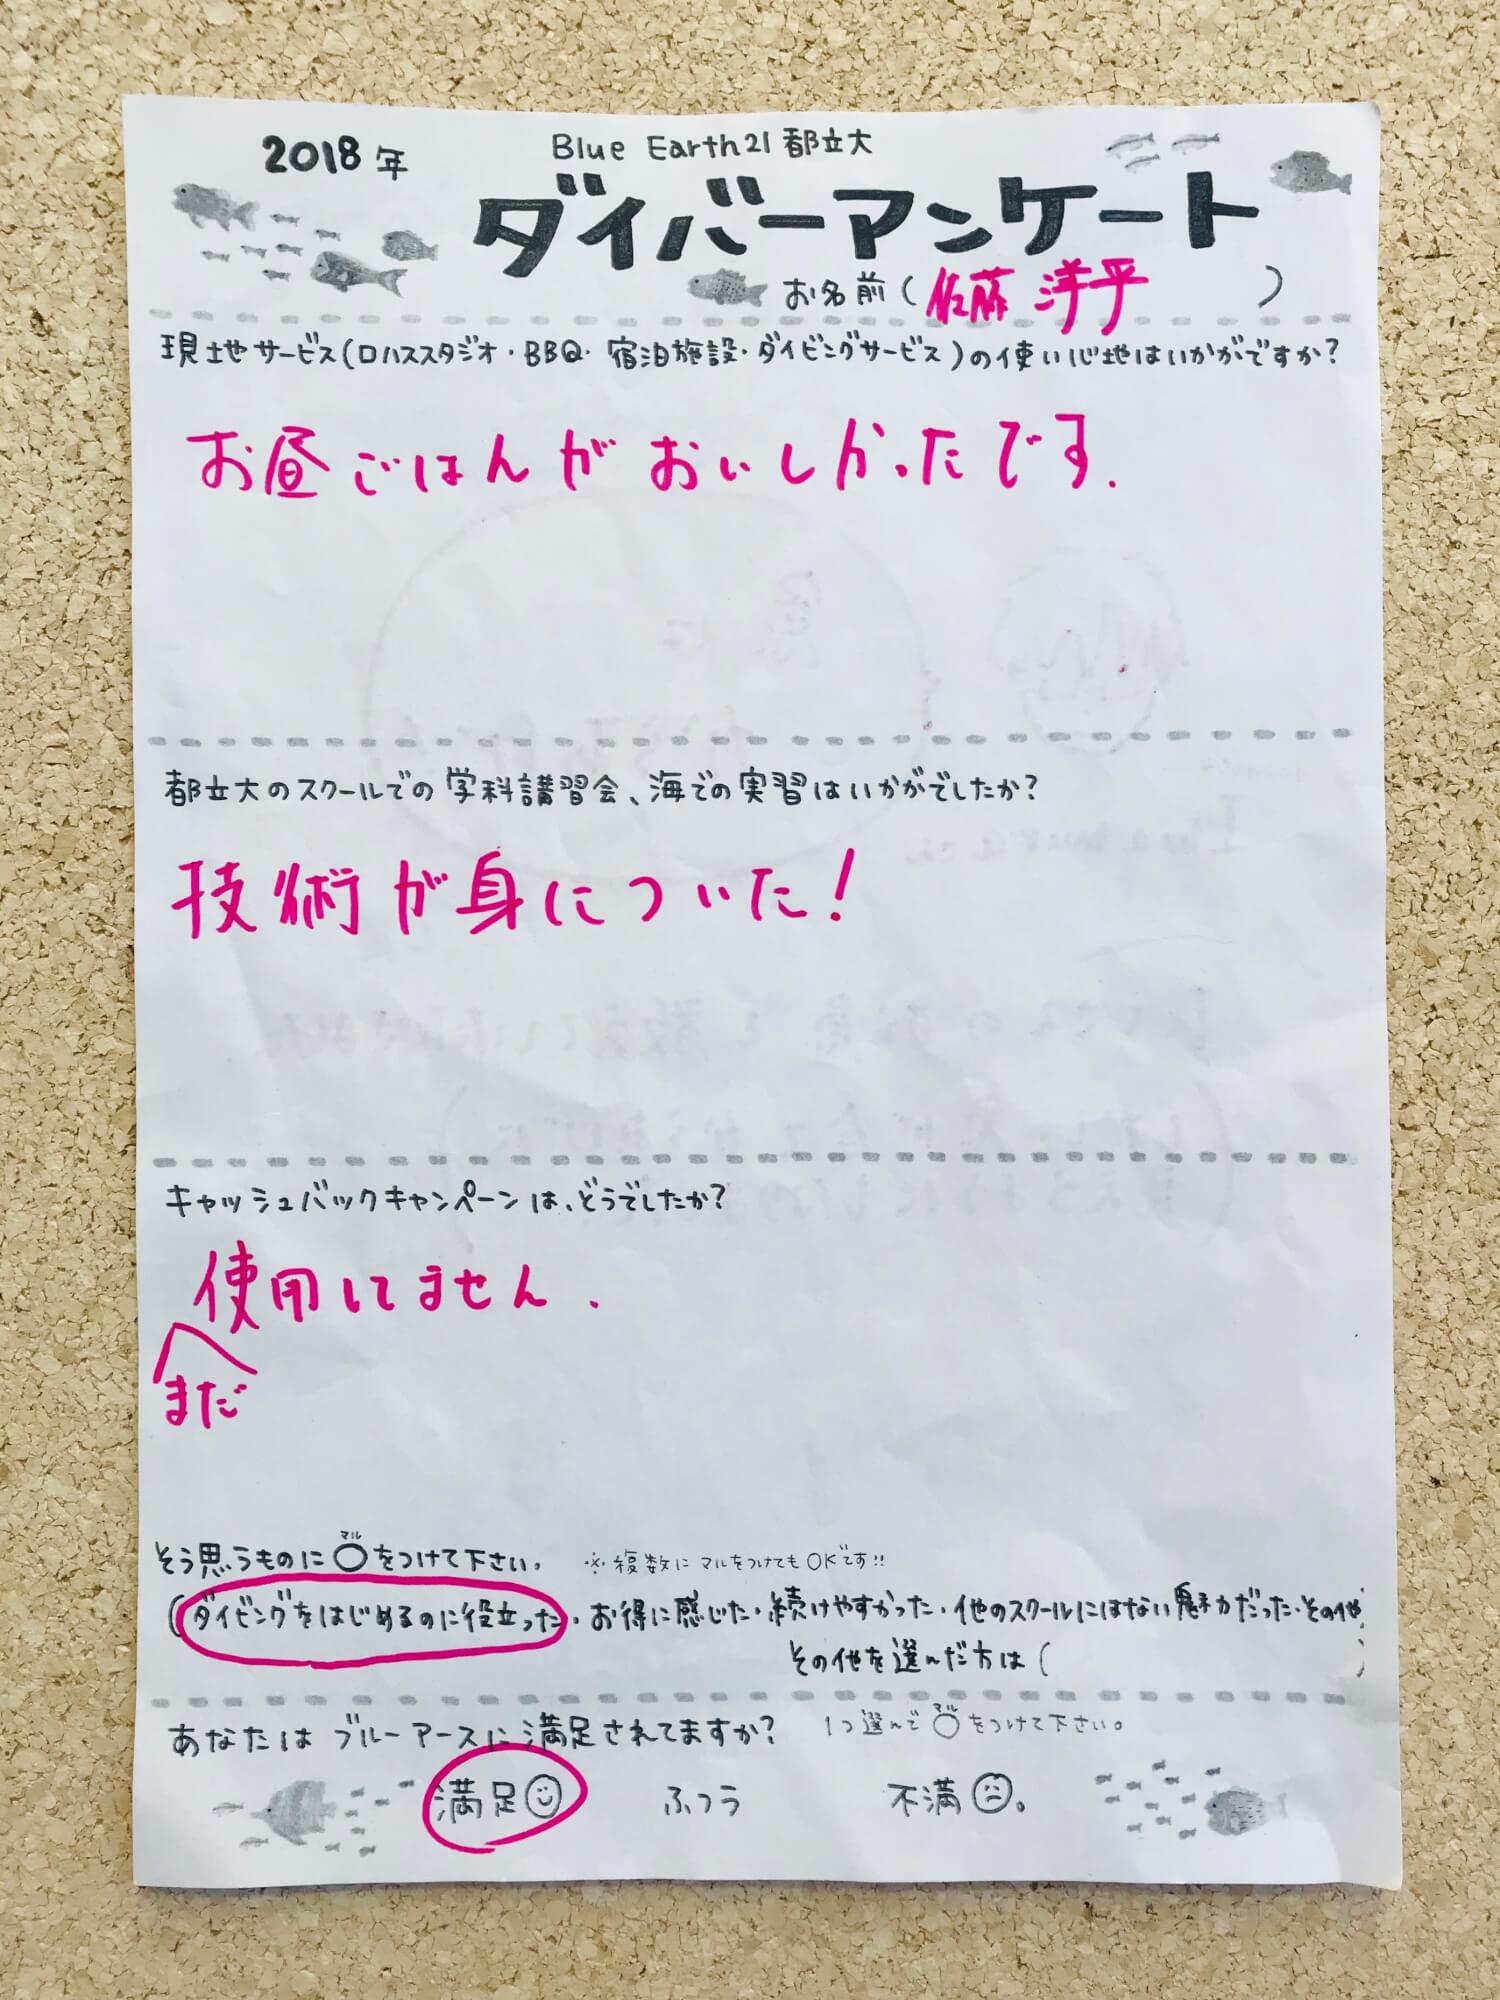 2018年
Blue Earth21都立大
ダイバーアンケート
お名前(佐藤 洋平)
現地サービス(ロハススタジオ・BBQ・宿泊施設・ダイビングサービス)の使い心地はいかがですか?
お昼ごはんがおいしかったです.
都立大のスクールでの学科講習会、海での実習はいかがでしたか?
技術が身についた!
キャッシュバックキャンペーンは、どうでしたか?
使用してません.
まだ
マル
そう思うものに○をつけて下さい。 ※複数にマルをつけてもOKです!!
(ダイビングをはじめるのに役立った・お得に感じた・続けやすかった・他のスクールにはない魅力だった・その他)
その他を選んだ方は( )
あなたはブルーアースに満足されてますか? 1つ選んで○をつけて下さい。
満足 ふつう 不満。